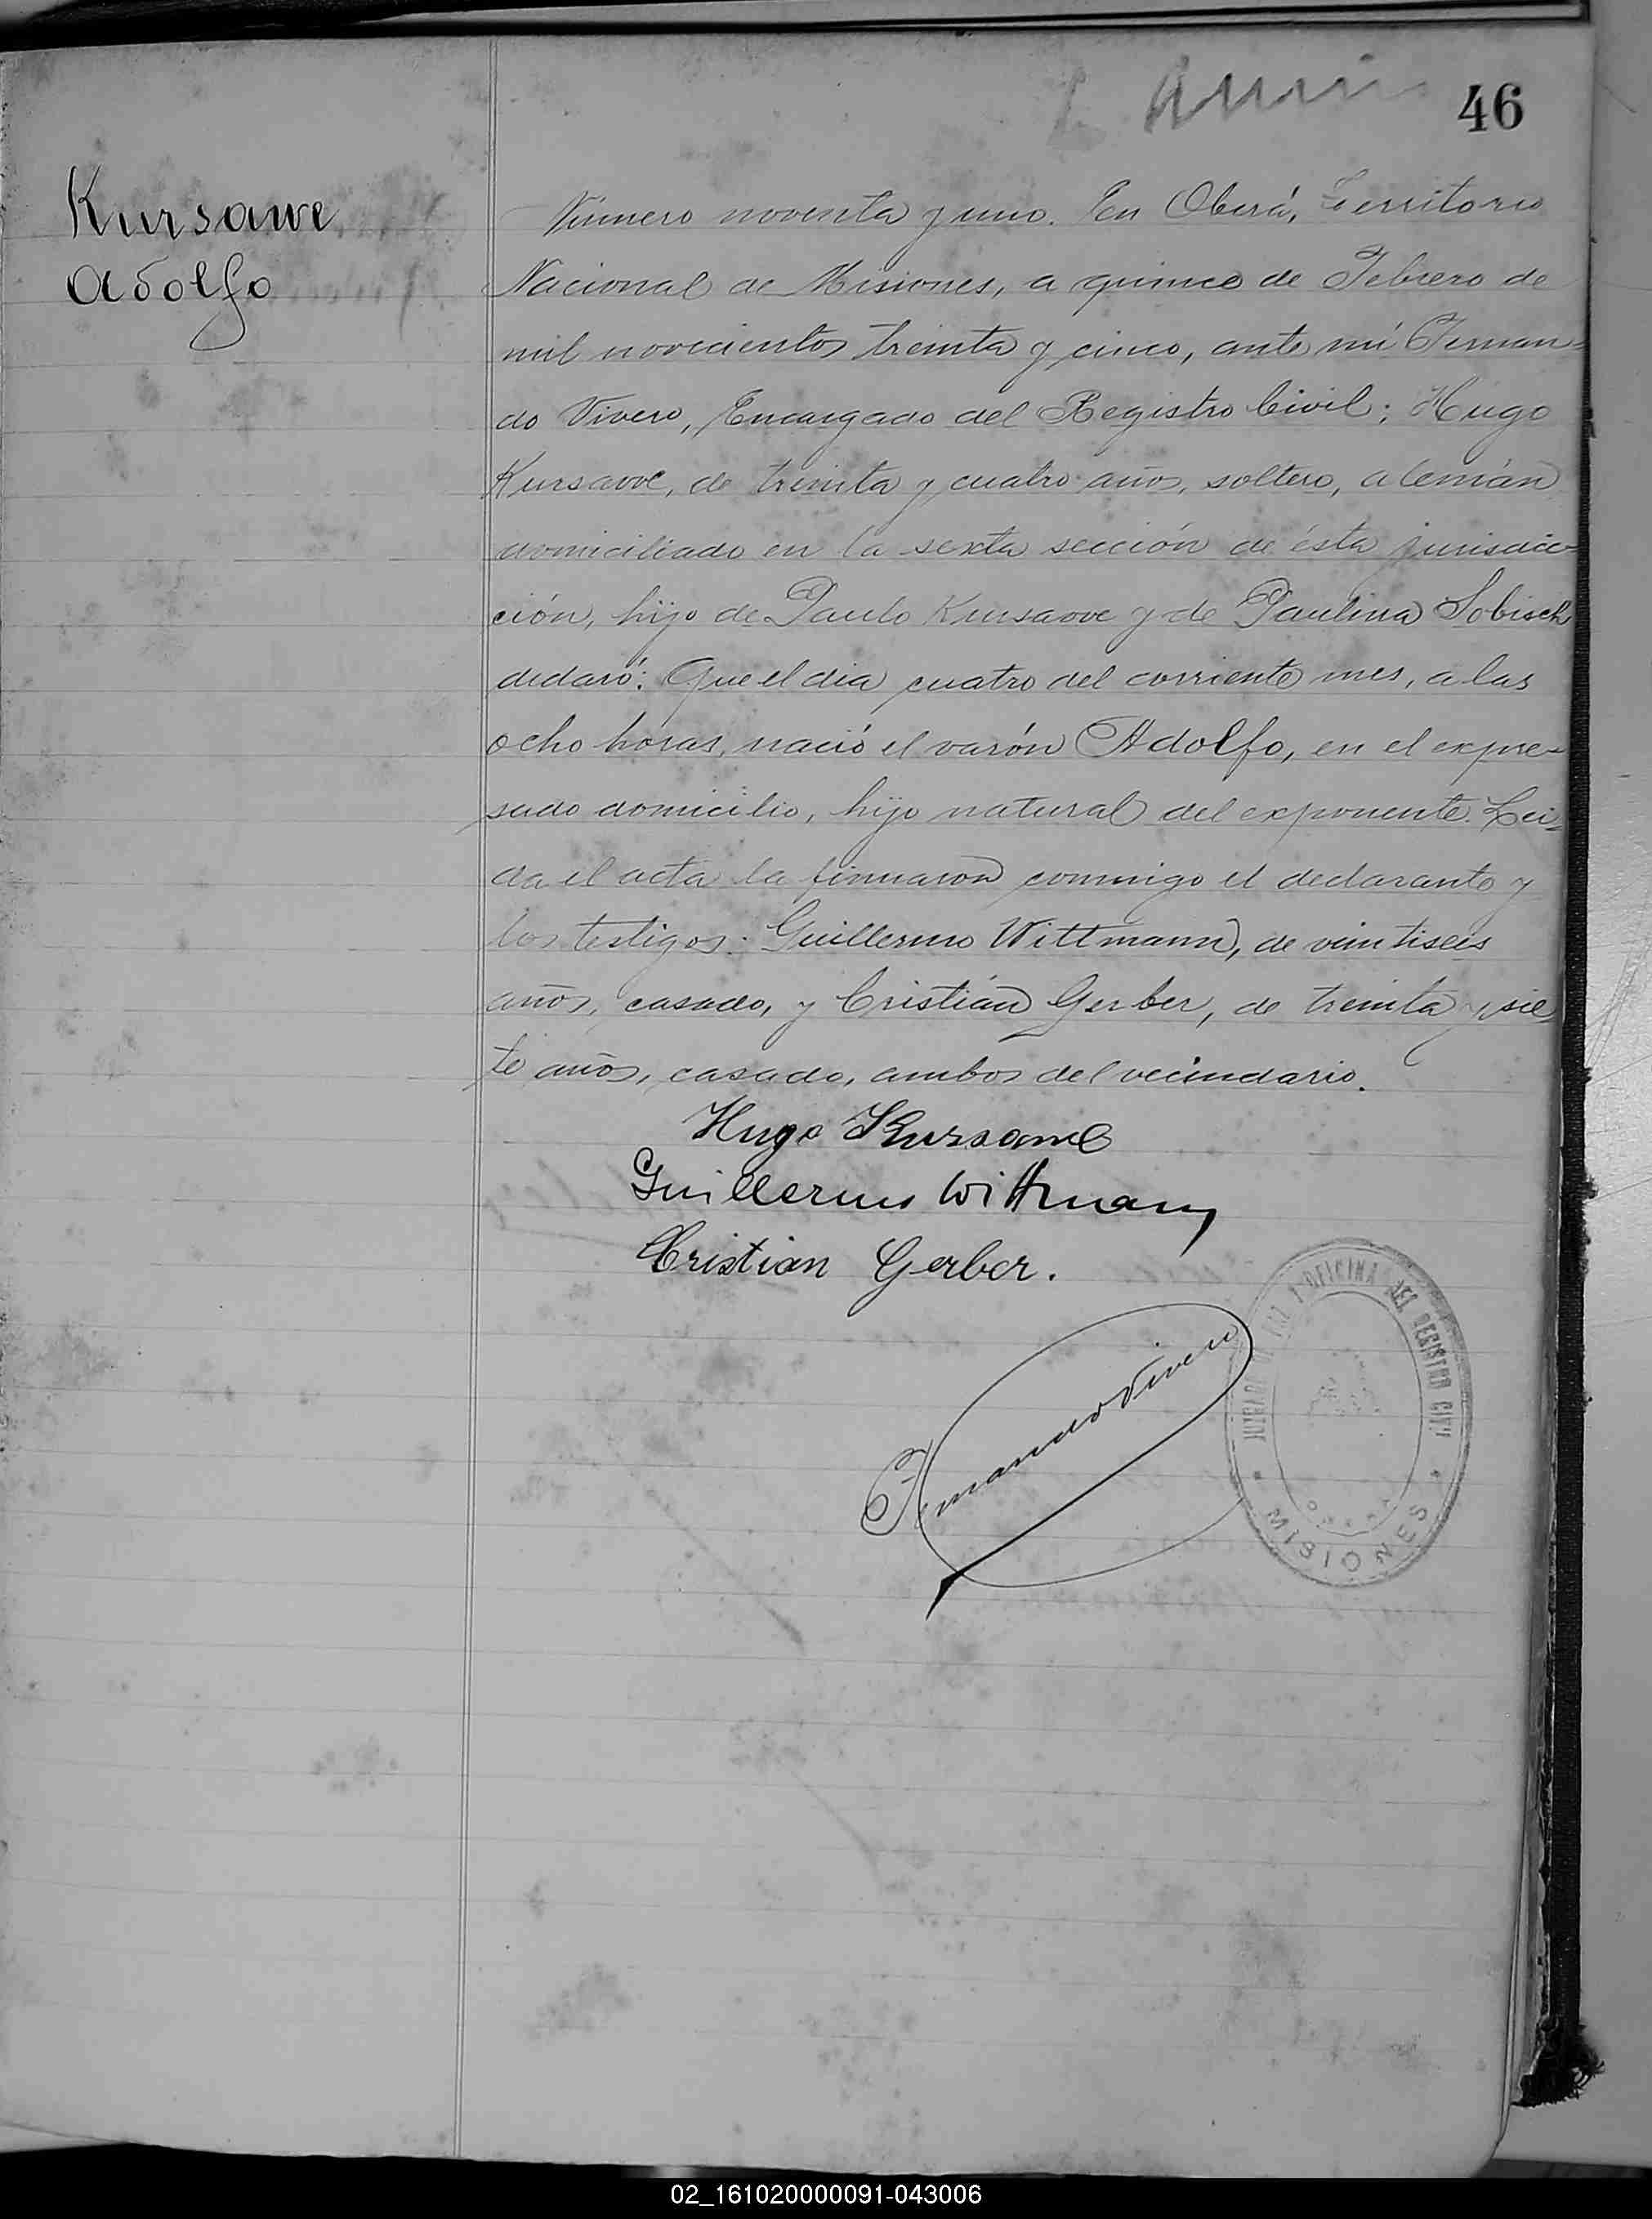 46
Kursawe
Adolfo
Número noventa y uno. En Oberá, Territorio
Nacional de Misiones, a quince de Febrero de
mil novecientos treinta y cinco, ante mí Fernan-
do Vivero, Encargado del Registro Civil; Hugo
Kursawe, de treinta y cuatro años, soltero, alemán
domiciliado en la sexta sección de ésta jurisdic-
ción, hijo de Paulo Kursawe y de Paulina Sobisch
declaró: Que el dia cuatro del corriente mes, a las
ocho horas, nació el varón Adolfo, en el expre-
sado domicilio, hijo natural del exponente. Lei-
da el acta la firmaron conmigo el declarante y
los testigos: Guillermo Wittmann, de veintiseis
años, casado, y Cristián Gerber, de treinta y sie
te años, casado, ambos del vecindario.
Hugo Kursawe
Guillermo Wittmann
Cristian Gerber.
Fernando Vivero
JUZGADO DE PAZ Y OFICINA DEL REGISTRO CIVIL
OBERA
MISIONES
02_161020000091-043006